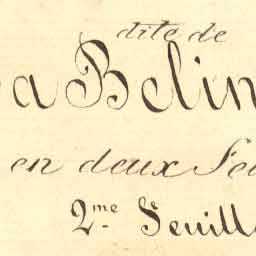 dite de
a Belin
en deux Fe
2.me Feuill